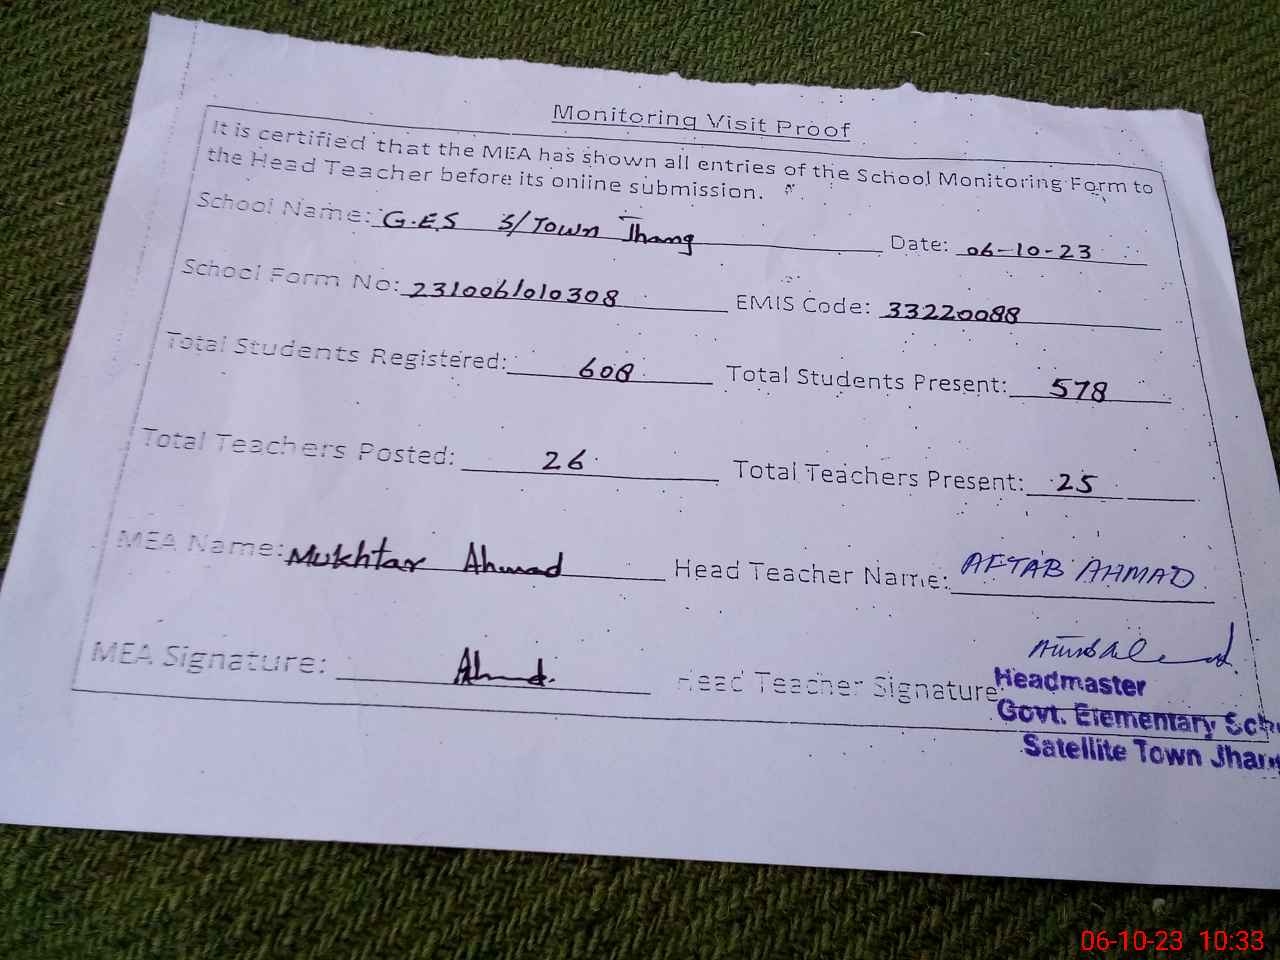 Monitoring Visit Proof
It is certified that the MEA has shown all entries of the School Monitoring Form to
the Head Teacher before its online submission.
School Name: G.E.S S/Town Jhang Date: 06-10-23
School Form No: 231006010308 EMIS Code: 33220088
Total Students Registered: 608 Total Students Present: 578
Total Teachers Posted: 26 Total Teachers Present: 25
MEA Name: Mukhtar Ahmad Head Teacher Name: AFTAB AHMAD
MEA Signature: Ahmd. Head Teacher Signature:
Headmaster
Govt. Elementary Scho
Satellite Town Jhang
06-10-23 10:33